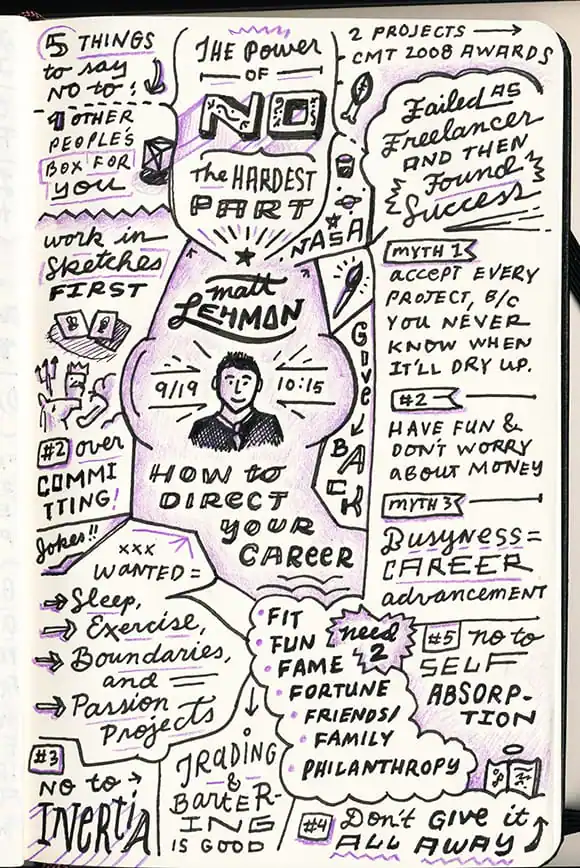 5 THINGS
to say
NO to!
1 OTHER
PEOPLE'S
BOX FOR
you
work in
Sketches
FIRST
#2 over
COMMI
TTING!
Jokes!!
THE Power
OF
NO
The HARDEST
PART
matt
LEHMAN
9/19 10:15
HOW to
DIRECT
YOUR
CAREER
2 PROJECTS →
CMT 2008 AWARDS
NASA
Give
BACK
Failed AS
Freelancer
AND THEN
Found
Success
MYTH 1
ACCEPT EVERY
PROJECT, B/C
YOU NEVER
KNOW WHEN
IT'LL DRY UP.
#2
HAVE FUN &
DON'T WORRY
ABOUT MONEY
MYTH 3
Busyness =
CAREER
advancement
xxx
WANTED =
Sleep,
Exercise,
Boundaries,
and
Passion
Projects
• FIT
• FUN
• FAME
• FORTUNE
• FRIENDS/
FAMILY
• PHILANTHROPY
need
2
#5 no to
SELF
ABSORP-
TION
#3
NO to →
INERTIA
TRADING
&
BARTER-
ING
IS GOOD
#4 Don't GIVE it
ALL AWAY